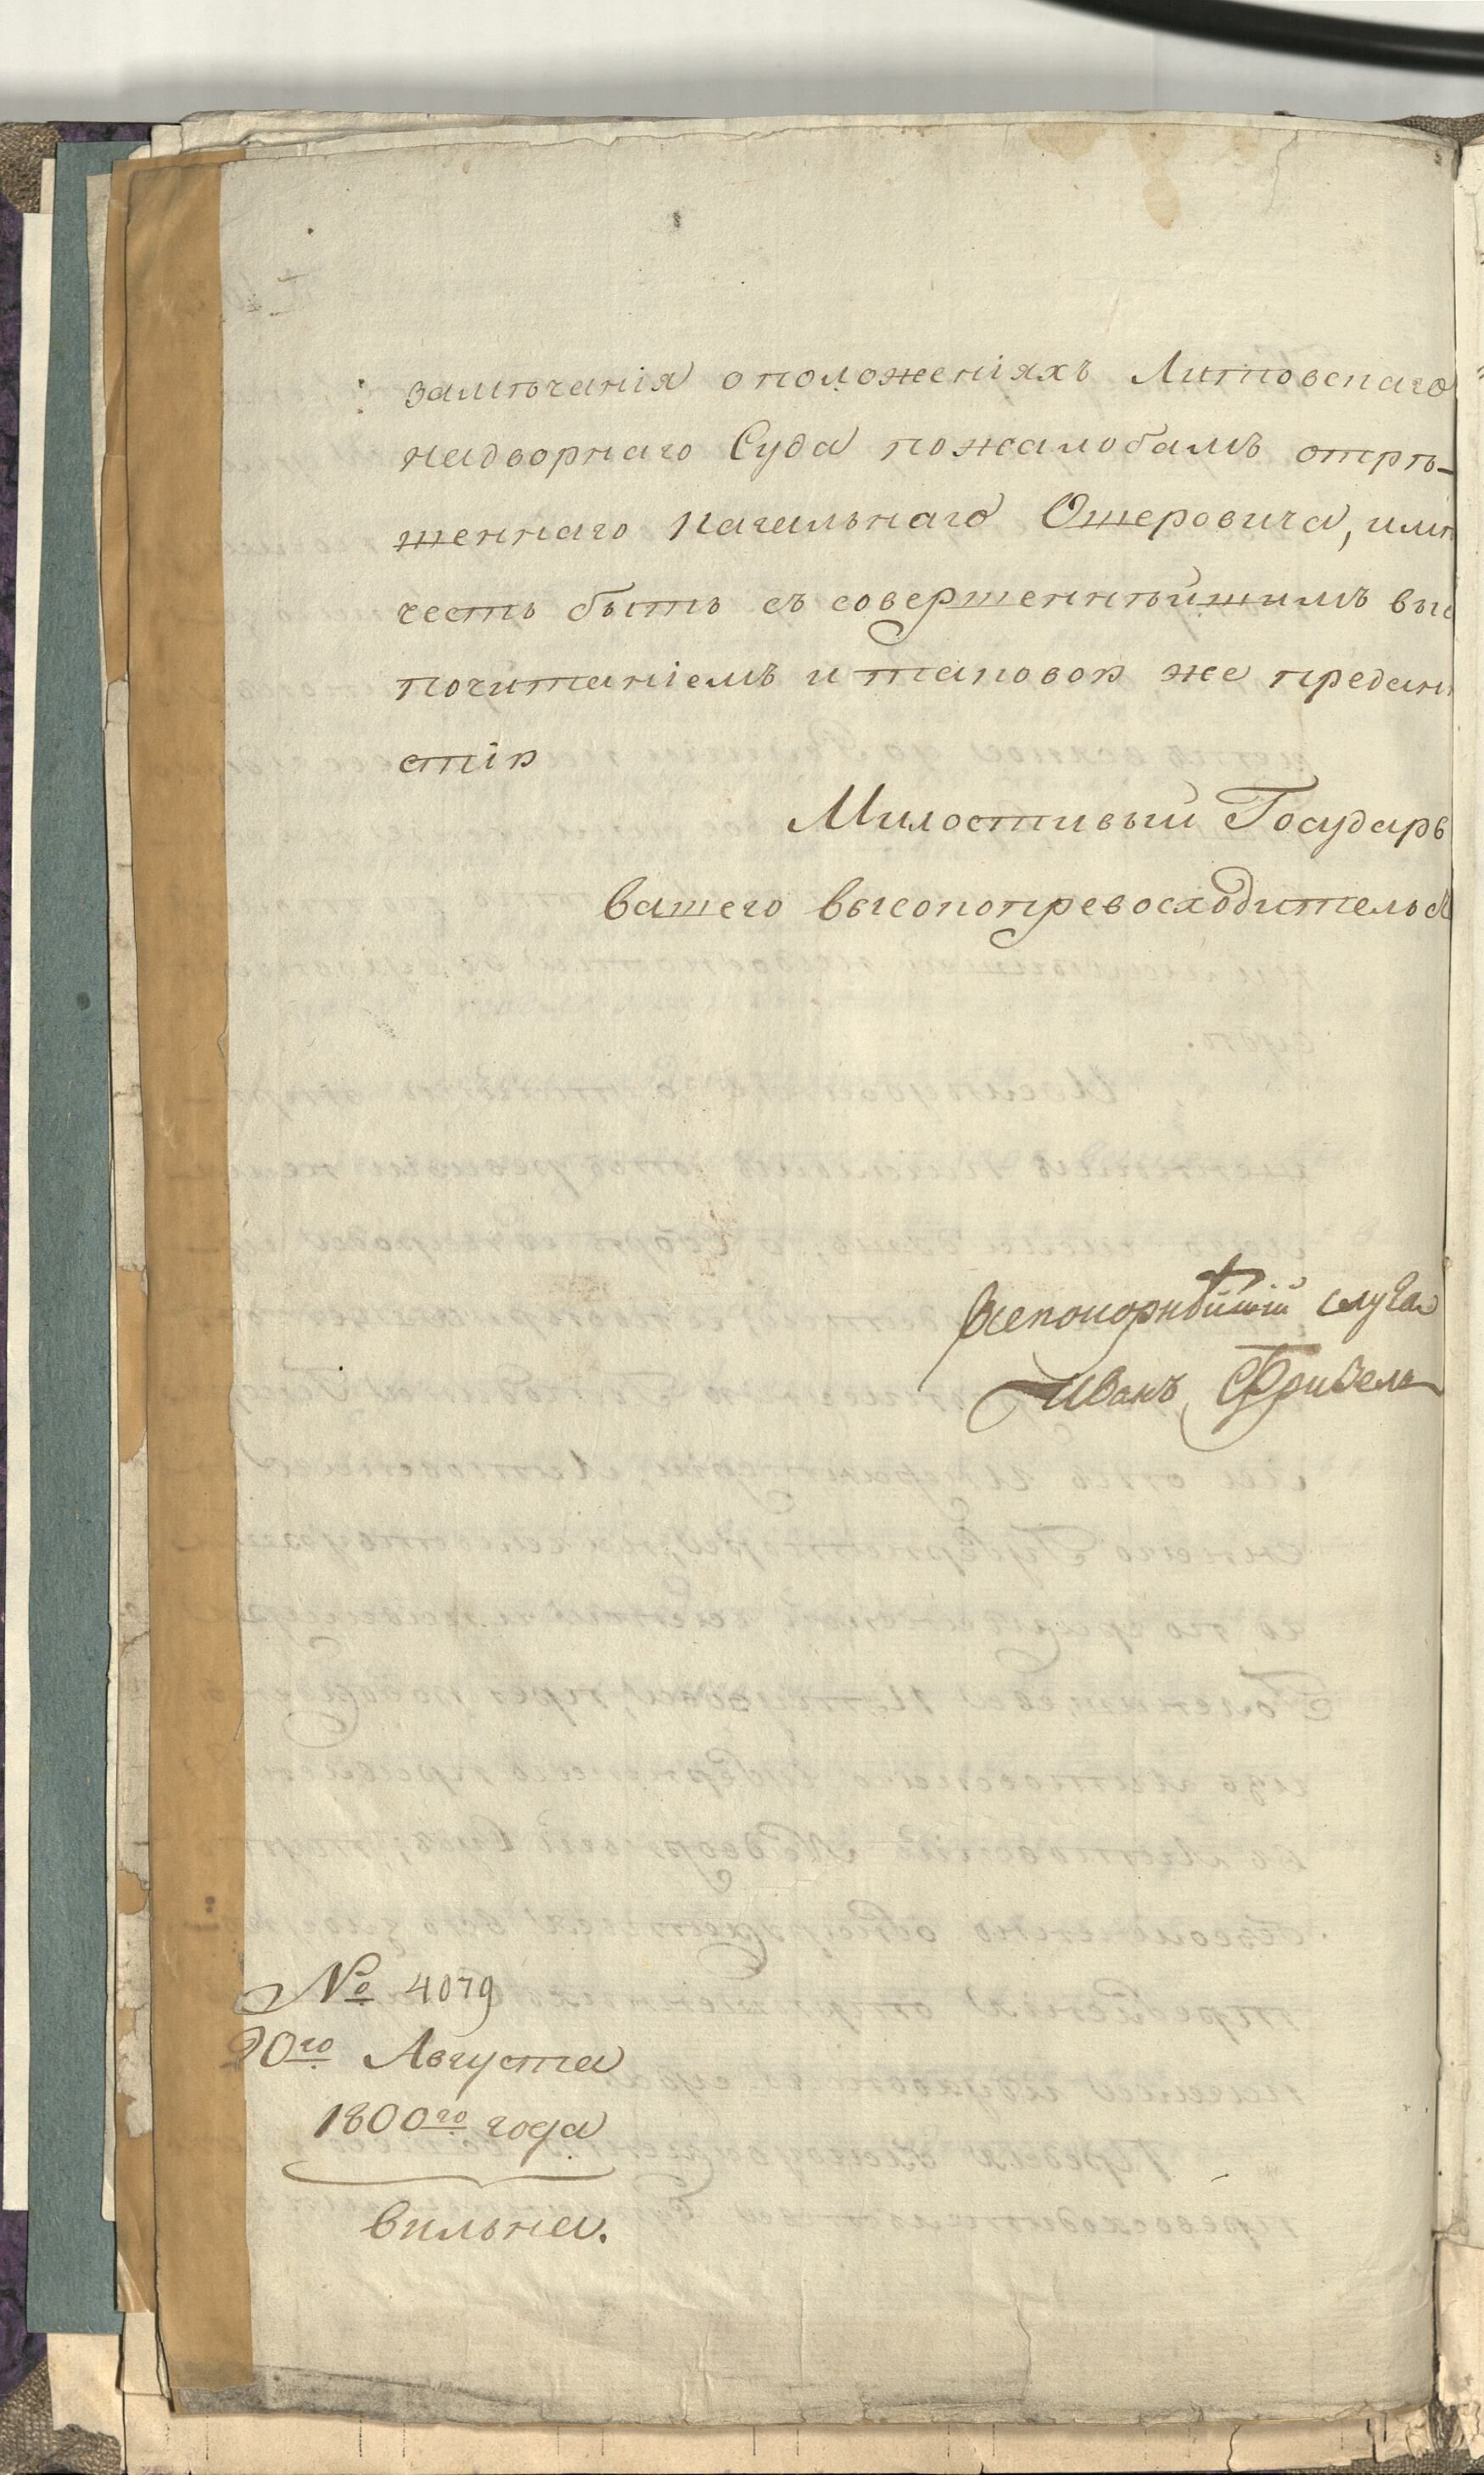 замѣчанія о положеніяхъ Литовскаго
надворнаго Суда по жалобамъ отрѣ-
шеннаго кагальнаго Ошеровича, имѣ
честь быть съ совершеннѣйшимъ выс
почитаніемъ и таковою же предан
стію
Милостивый Государь
вашего высокопревосходительс
всепокорнѣйшій слуга
Иванъ Фризель
№ 4079
20го Августа
1800го года
вильна.